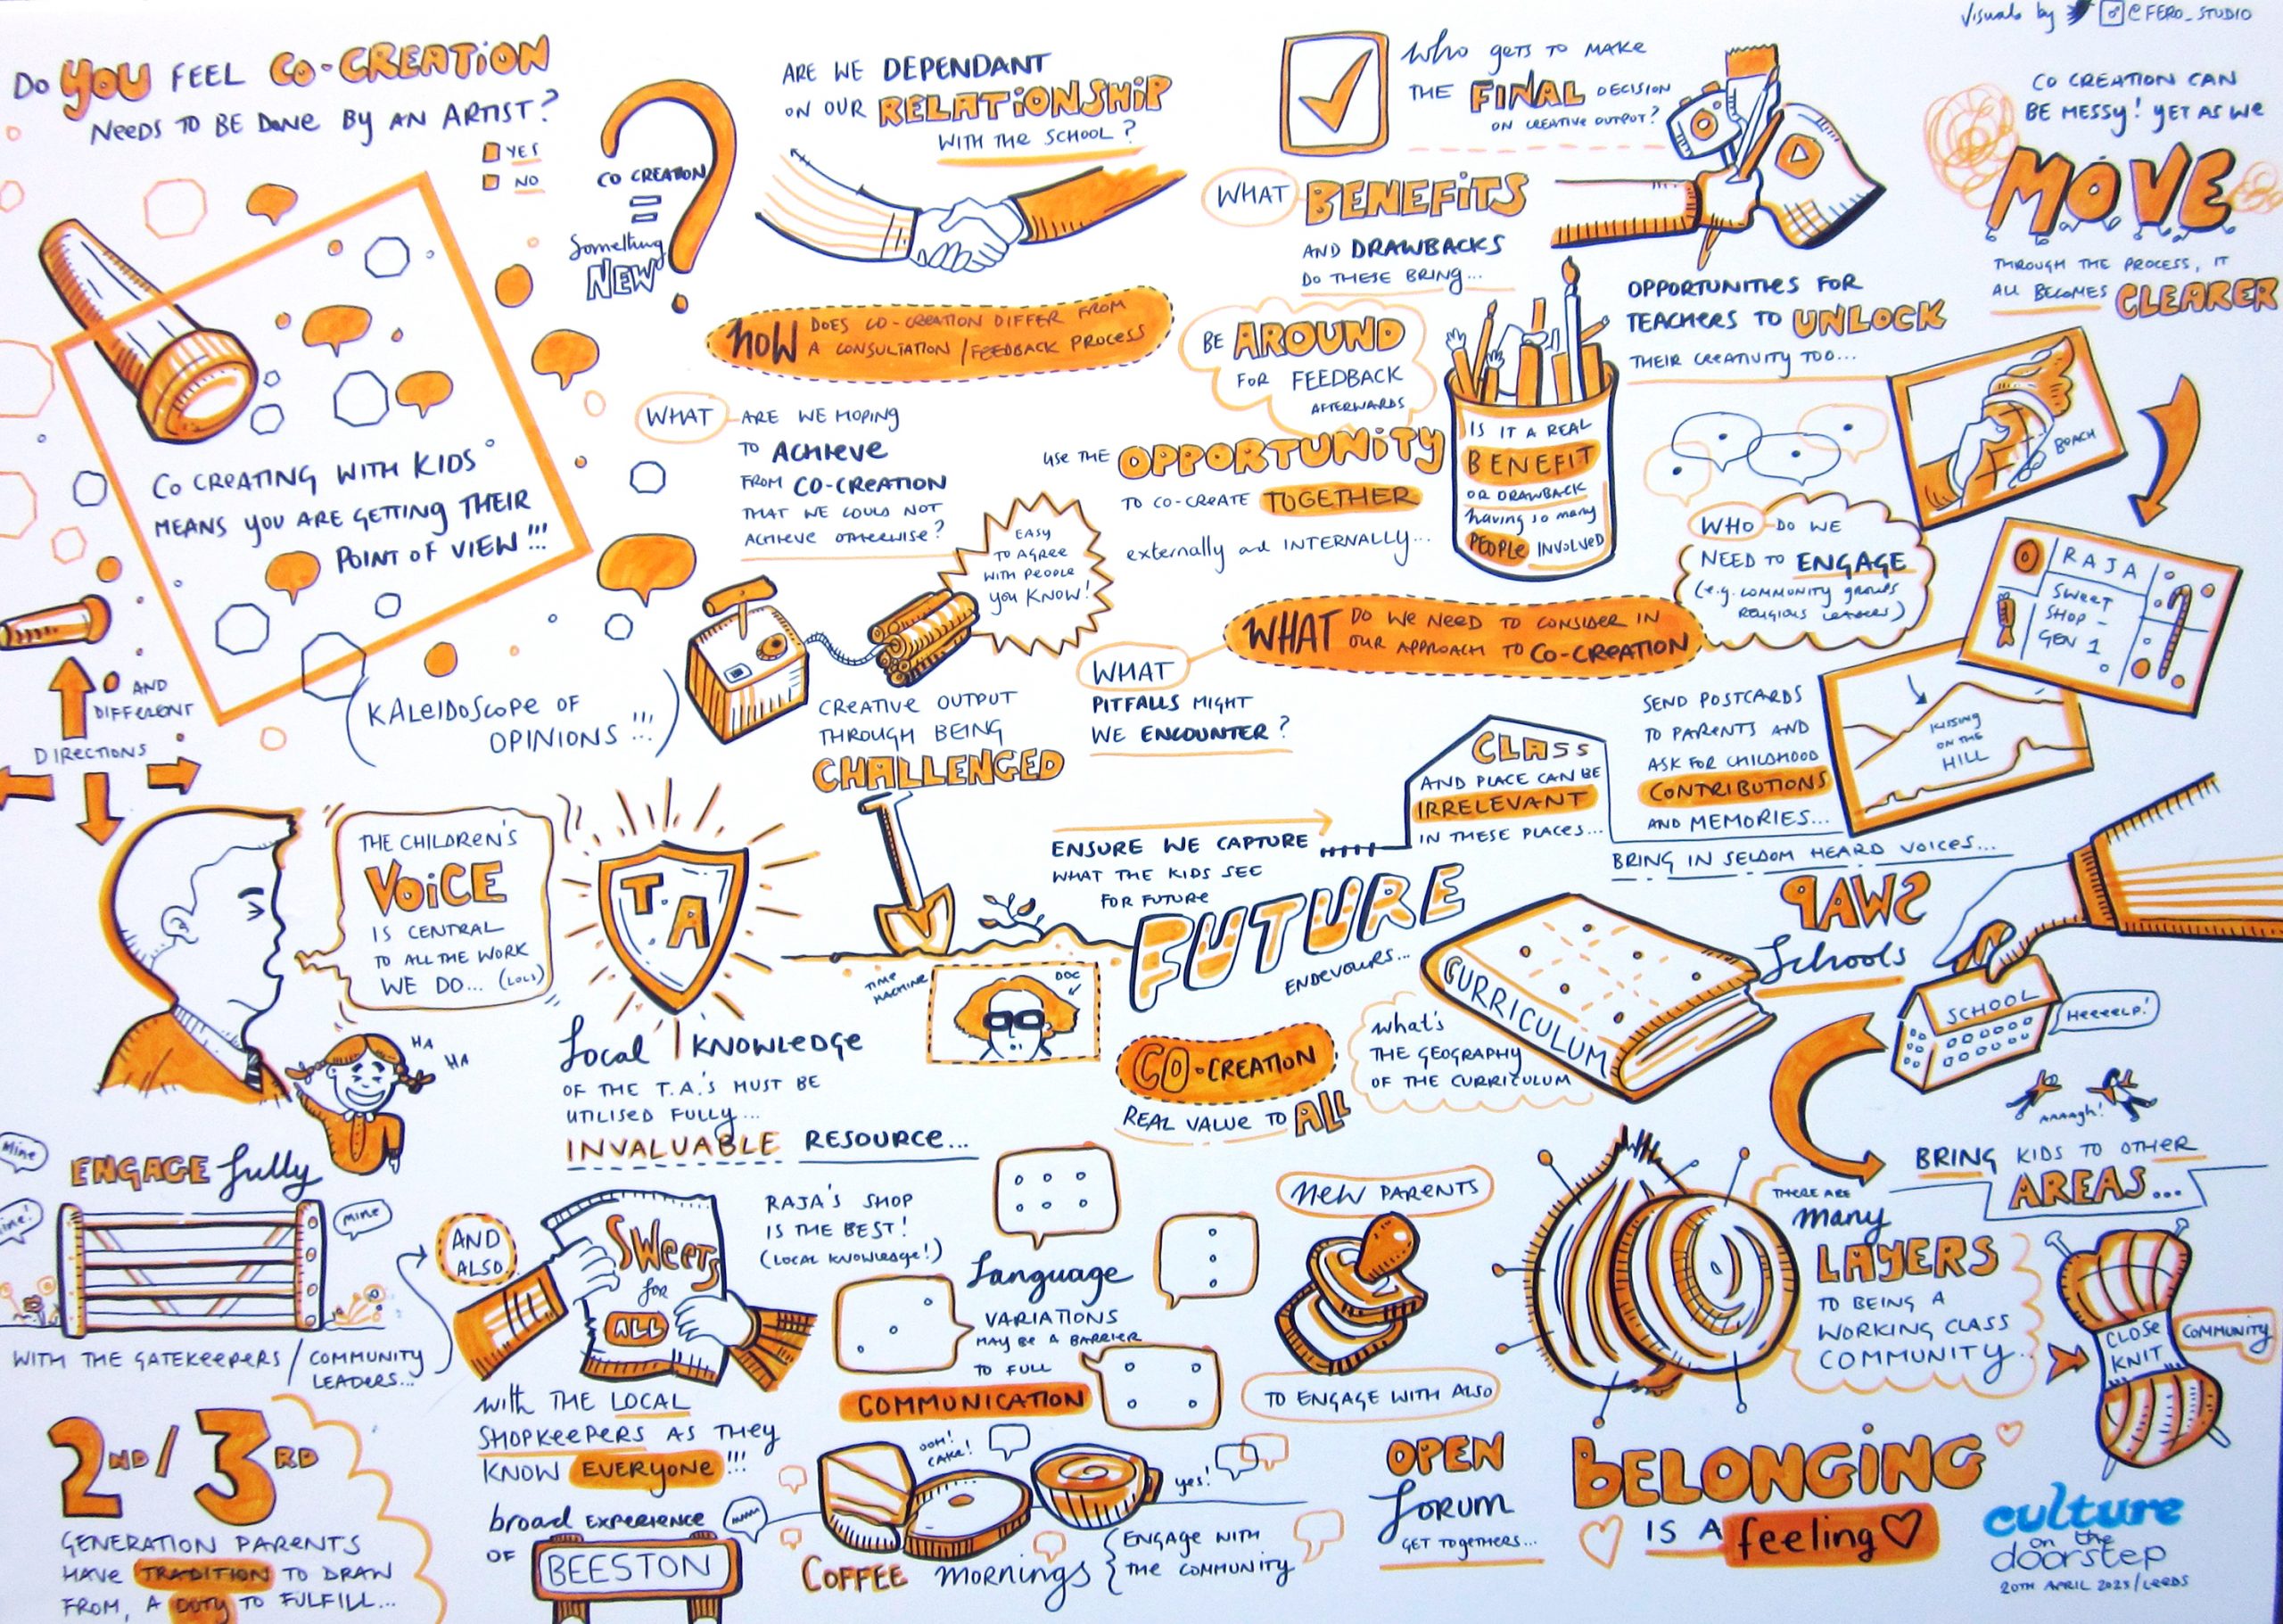 Visuals by @FERO_STUDIO
DO YOU FEEL CO-CREATION
NEEDS TO BE DONE BY AN ARTIST?
YES
NO
CO CREATION
=
Something
NEW
ARE WE DEPENDANT
ON OUR RELATIONSHIP
WITH THE SCHOOL?
Who GETS TO MAKE
THE FINAL DECISION
ON CREATIVE OUTPUT?
WHAT BENEFITS
AND DRAWBACKS
DO THESE BRING...
CO CREATION CAN
BE MESSY! YET AS WE
MOVE
THROUGH THE PROCESS, IT
ALL BECOMES CLEARER
HOW DOES CO-CREATION DIFFER FROM
A CONSULTATION/FEEDBACK PROCESS
BE AROUND
FOR FEEDBACK
AFTERWARDS
OPPORTUNITIES FOR
TEACHERS TO UNLOCK
THEIR CREATIVITY TOO...
CO CREATING WITH KIDS
MEANS YOU ARE GETTING THEIR
POINT OF VIEW!!!
(KALEIDOSCOPE OF
OPINIONS!!!)
AND
DIFFERENT
DIRECTIONS
WHAT ARE WE HOPING
TO ACHIEVE
FROM CO-CREATION
THAT WE COULD NOT
ACHIEVE OTHERWISE?
USE THE OPPORTUNITY
TO CO-CREATE TOGETHER
externally and INTERNALLY...
IS IT A REAL
BENEFIT
OR DRAWBACK
having so many
PEOPLE INVOLVED
EASY
TO AGREE
WITH PEOPLE
YOU KNOW!
CREATIVE OUTPUT
THROUGH BEING
CHALLENGED
WHAT
PITFALLS MIGHT
WE ENCOUNTER?
WHAT DO WE NEED TO CONSIDER IN
OUR APPROACH TO CO-CREATION
WHO DO WE
NEED TO ENGAGE
(e.g. COMMUNITY GROUPS
RELIGIOUS LEADERS)
RAJA
SWEET
SHOP -
GEN 1
KISSING
ON THE
HILL
SEND POSTCARDS
TO PARENTS AND
ASK FOR CHILDHOOD
CONTRIBUTIONS
AND MEMORIES...
BRING IN SELDOM HEARD VOICES...
CLASS
AND PLACE CAN BE
IRRELEVANT
IN THESE PLACES...
ENSURE WE CAPTURE
WHAT THE KIDS SEE
FOR FUTURE
FUTURE
ENDEVOURS...
THE CHILDREN'S
VOICE
IS CENTRAL
TO ALL THE WORK
WE DO... (LOLS)
HA
HA
T.A
Local KNOWLEDGE
OF THE T.A.'S MUST BE
UTILISED FULLY...
INVALUABLE RESOURCE...
TIME
MACHINE
DOC
CO-CREATION
REAL VALUE TO ALL
what's
THE GEOGRAPHY
OF THE CURRICULUM
CURRICULUM
SWAP
Schools
SCHOOL
HEEEEELP!
AAAAGH!
BRING KIDS TO OTHER
AREAS...
Mine
Mine!
MINE
ENGAGE fully
WITH THE GATEKEEPERS / COMMUNITY
LEADERS...
AND
ALSO
SWEETS
for
ALL
RAJA'S SHOP
IS THE BEST!
(LOCAL KNOWLEDGE!)
with THE LOCAL
SHOPKEEPERS AS THEY
KNOW EVERYONE!!!
Language
VARIATIONS
MAY BE A BARRIER
TO FULL
COMMUNICATION
NEW PARENTS
TO ENGAGE WITH ALSO
THERE ARE
many
LAYERS
TO BEING A
WORKING CLASS
COMMUNITY.
CLOSE
KNIT
COMMUNITY
2ND/3RD
GENERATION PARENTS
HAVE TRADITION TO DRAW
FROM, A DUTY TO FULFILL...
broad EXPERIENCE
OF BEESTON
OOH!
CAKE!
yes!
COFFEE mornings
ENGAGE WITH
THE COMMUNITY
OPEN
forum
GET TOGETHERS...
BELONGING
IS A feeling
culture
on the
doorstep
20TH APRIL 2023/LEEDS